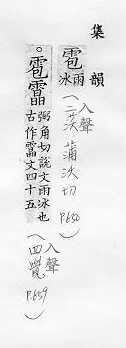 集韻
雹 雨冰 (入聲 三沃 蒲沃切 P.650)
。雹 弼角切說文雨冰也古作 文四十五 (入聲 四覺 P.659)